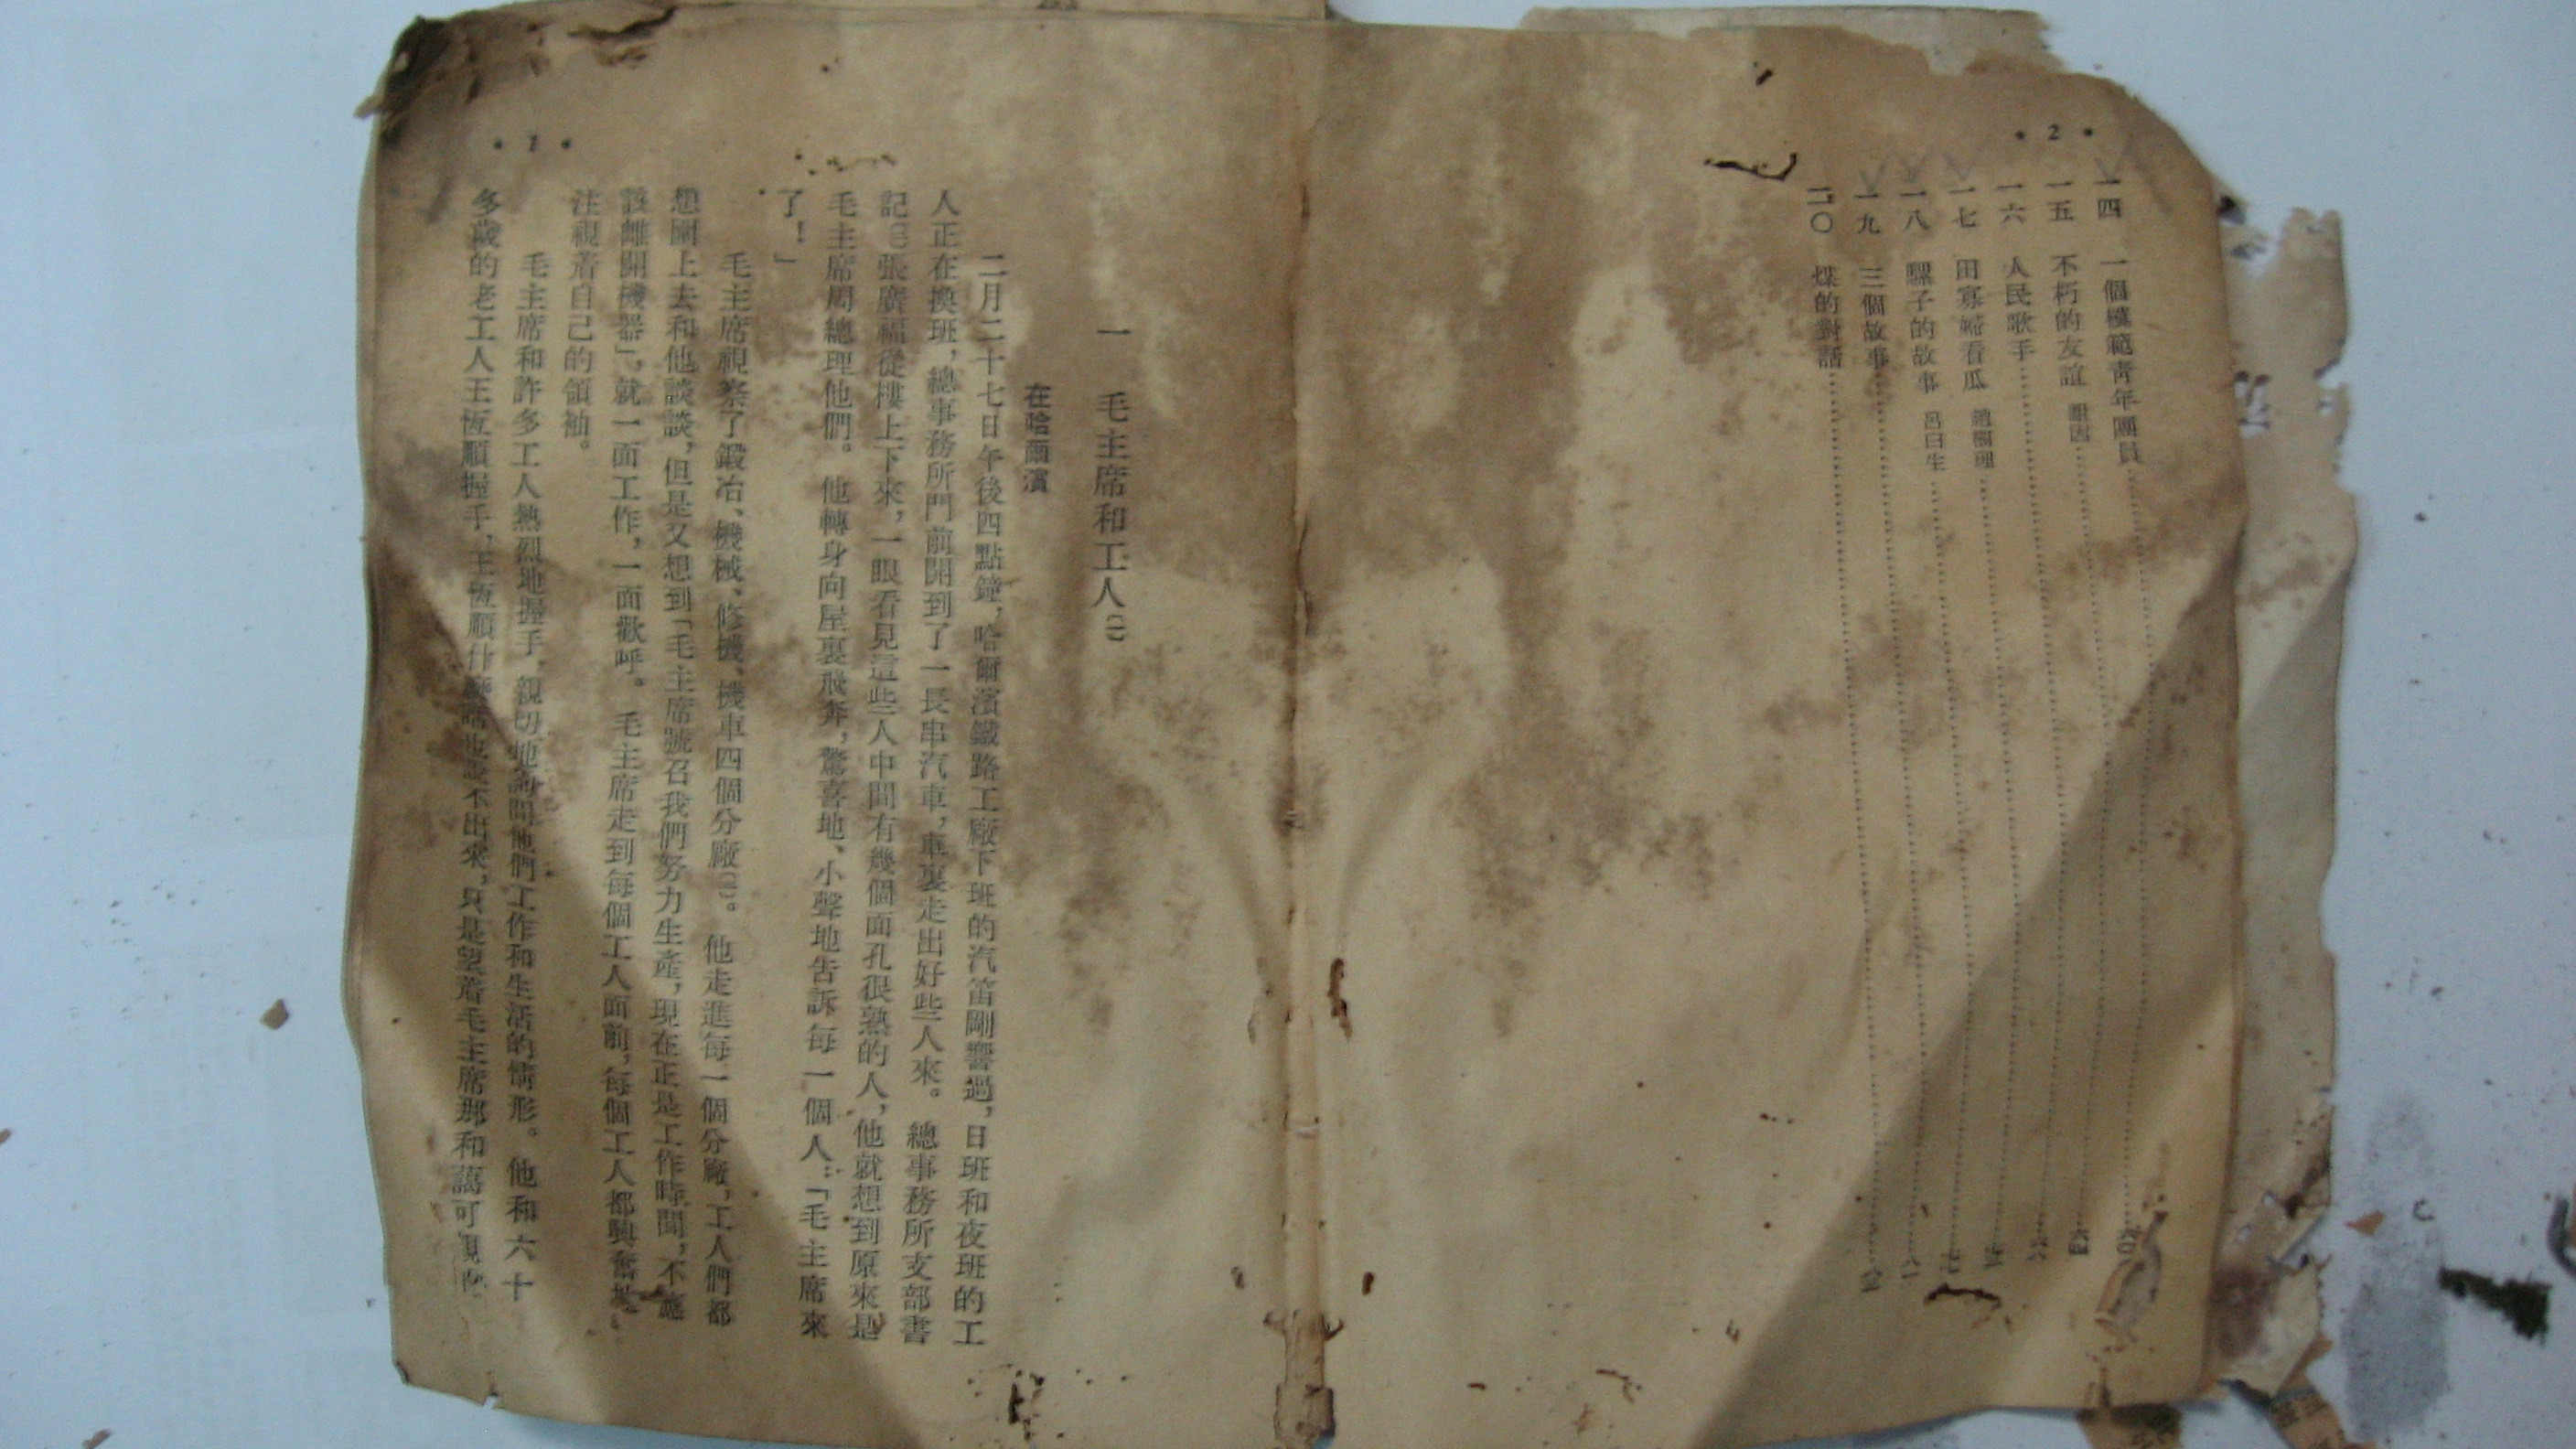 • 2 •
一四 一個模範青年團員 六〇
一五 不朽的友誼 六四
一六 人民歌手
一七 田寡婦看瓜 趙樹理
一八 騾子的故事 呂曰生 七
一九 三個故事 八一
二〇 煤的對話
一 毛主席和工人㈠
在哈爾濱
二月二十七日午後四點鐘，哈爾濱鐵路工廠下班的汽笛剛響過，日班和夜班的工
人正在換班，總事務所門前開到了一長串汽車，車裏走出好些人來。總事務所支部書
記㈡張廣福從樓上下來，一眼看見這些人中間有幾個面孔很熟的人，他就想到原來是
毛主席周總理他們。他轉身向屋裏飛奔，驚喜地、小聲地告訴每一個人：「毛主席來
了！」
毛主席視察了鍛冶、機械、修機、機車四個分廠㈢。他走進每一個分廠，工人們都
想圍上去和他談談，但是又想到「毛主席號召我們努力生產，現在正是工作時間，不應
該離開機器」，就一面工作，一面歡呼。毛主席走到每個工人面前，每個工人都興奮地
注視着自己的領袖。
毛主席和許多工人熱烈地握手，親切地詢問他們工作和生活的情形。他和六十
多歲的老工人王恆順握手，王恆順什麼話也說不出來，只是望着毛主席那和藹可親的
• 1 •